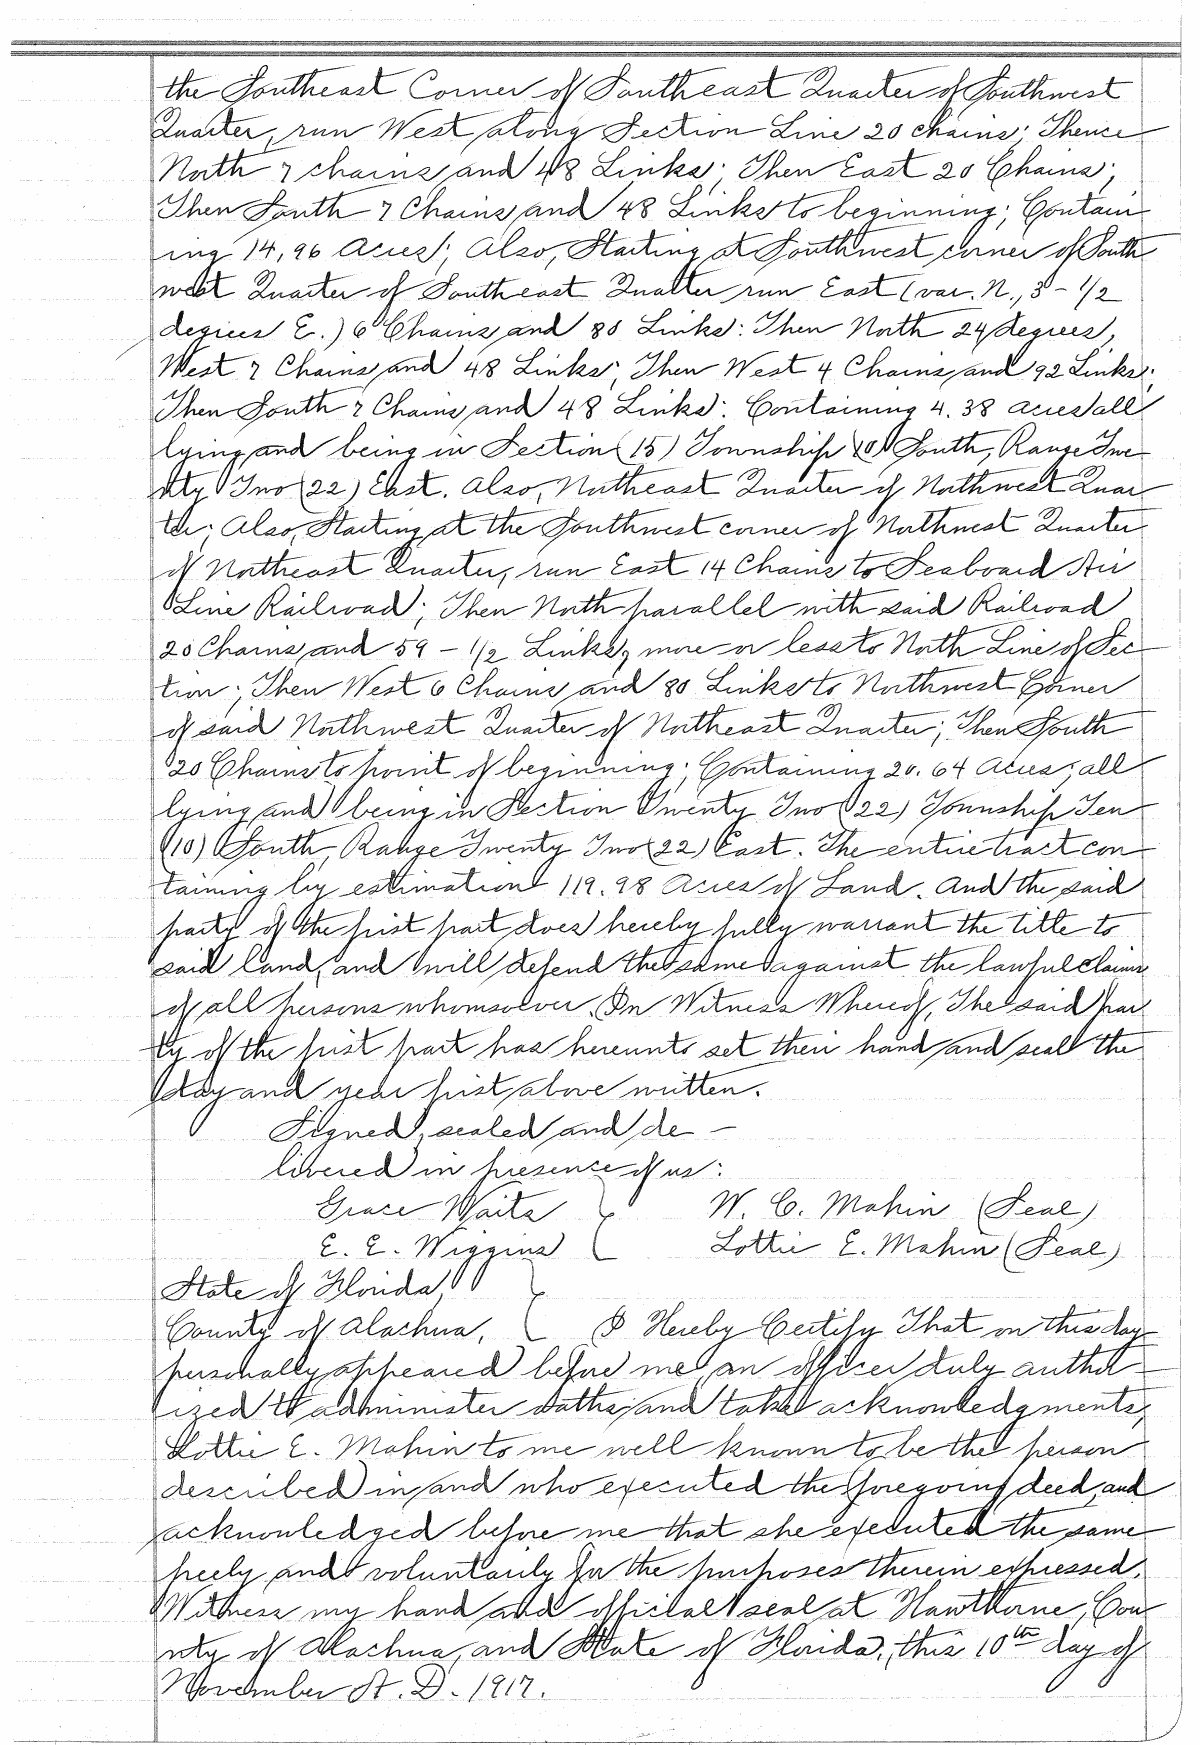 the Southeast Corner of Southeast Quarter of Southwest
Quarter, run West along Section Line 20 chains; Thence
North 7 chains and 48 Links; Then East 20 Chains;
Then South 7 Chains and 48 Links to beginning; Contain
ing 14,96 Acres; Also, Starting at Southwest corner of South
west Quarter of Southeast Quarter run East (var. N., 3-1/2
degrees E.) 6 Chains and 80 Links: Then North 24 degrees,
West 7 Chains and 48 Links; Then West 4 Chains and 92 Links;
Then South 7 Chains and 48 Links: Containing 4.38 acres all
lying and being in Section (15) Township (10) South, Range Twe
nty Two (22) East. Also, Northeast Quarter of Northwest Quar
ter; Also, Starting at the Southwest corner of Northwest Quarter
of Northeast Quarter, run East 14 Chains to Seaboard Air
Line Railroad; Then North parallel with said Railroad
20 Chains and 59-1/2 Links, more or less to North Line of Sec
tion; Then West 6 Chains and 80 Links to Northwest Corner
of said Northwest Quarter of Northeast Quarter; Then South
20 Chains to point of beginning; Containing 20.64 Acres; all
lying and being in Section Twenty Two (22) Township Ten
(10) South, Range Twenty Two (22) East. The entire tract con
taining by estimation 119.98 Acres of Land. And the said
party of the first part does hereby fully warrant the title to
said land, and will defend the same against the lawful claims
of all persons whomsoever. In Witness Whereof, The said par
ty of the first part has hereunto set their hand and seal the
day and year first above written.
Signed, sealed and de-
livered in presence of us:
Grace Waits W. C. Mahin (Seal)
E. E. Wiggins Lottie E. Mahin (Seal)
State of Florida,
County of Alachua, I Hereby Certify That on this day
personally appeared before me, an officer duly author-
ized to administer oaths and take acknowledgments,
Lottie E. Mahin to me well known to be the person
described in and who executed the foregoing deed, and
acknowledged before me that she executed the same
freely and voluntarily for the purposes therein expressed.
Witness my hand and official seal at Hawthorne, Cou
nty of Alachua, and State of Florida, this 10th day of
November A. D. 1917.